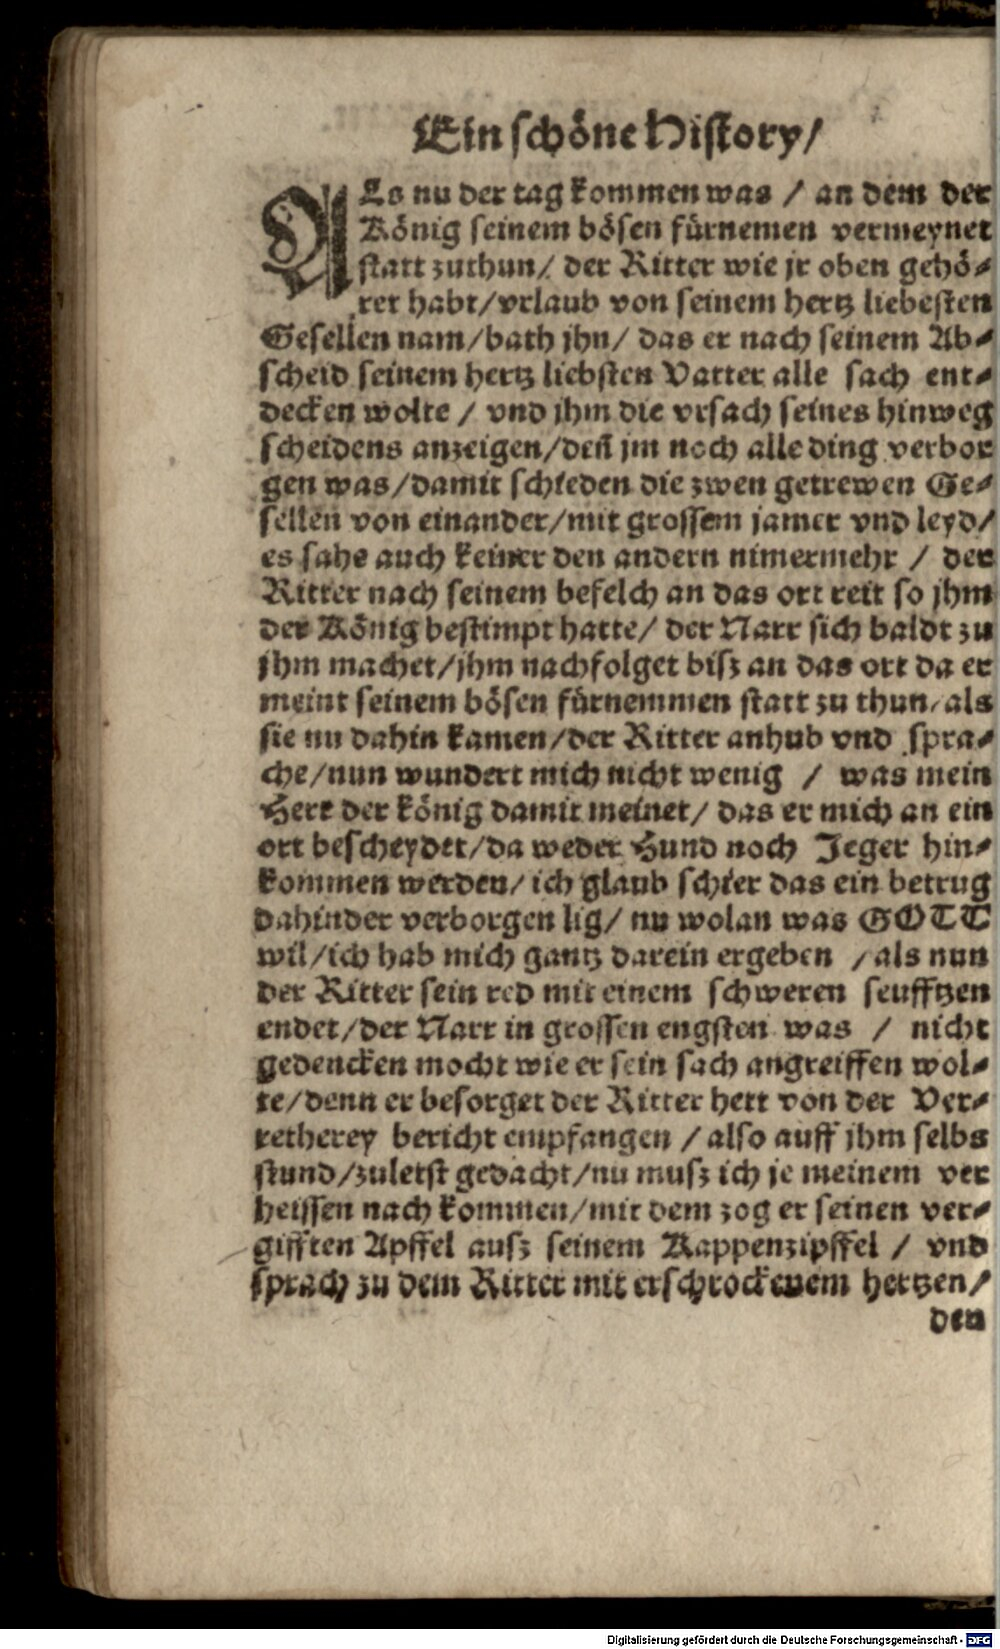 Ein schöne History/
ALs nu der tag kommen was / an dem der
König seinem bösen fürnemen vermeynet
statt zuthun/ der Ritter wie jr oben gehö-
ret habt/vrlaub von seinem hertz liebesten
Gesellen nam/bath jhn/ das er nach seinem Ab-
scheid seinem hertz liebsten Vatter alle sach ent-
decken wolte / vnd jhm die vrsach seines hinweg
scheidens anzeigen/deñ jm noch alle ding verbor
gen was/damit schieden die zwen getrewen Ge-
sellen von einander/mit grossem jamer vnd leyd/
es sahe auch keiner den andern nimermehr / der
Ritter nach seinem befelch an das ort reit so jhm
der König bestimpt hatte/ der Narr sich baldt zu
jhm machet/jhm nachfolget bisz an das ort da er
meint seinem bösen fürnemmen statt zu thun/als
sie nu dahin kamen/der Ritter anhub vnd spra-
che/nun wundert mich nicht wenig / was mein
Herr der könig damit meinet/ das er mich an ein
ort bescheydet/da weder Hund noch Jeger hin-
kommen werden/ ich glaub schier das ein betrug
dahinder verborgen lig/ nu wolan was GOTT
wil/ich hab mich gantz darein ergeben /als nun
der Ritter sein red mit einem schweren seufftzen
endet/der Narr in grossen engsten was / nicht
gedencken mocht wie er sein sach angreiffen wol-
te/denn er besorget der Ritter hett von der Ver-
retherey bericht empfangen / also auff jhm selbs
stund/zuletst gedacht/nu musz ich je meinem ver
heissen nach kommen/mit dem zog er seinen ver-
gifften Apffel ausz seinem Kappenzipffel / vnd
sprach zu dem Ritter mit erschrockenem hertzen/
den
Digitalisierung gefördert durch die Deutsche Forschungsgemeinschaft - DFG